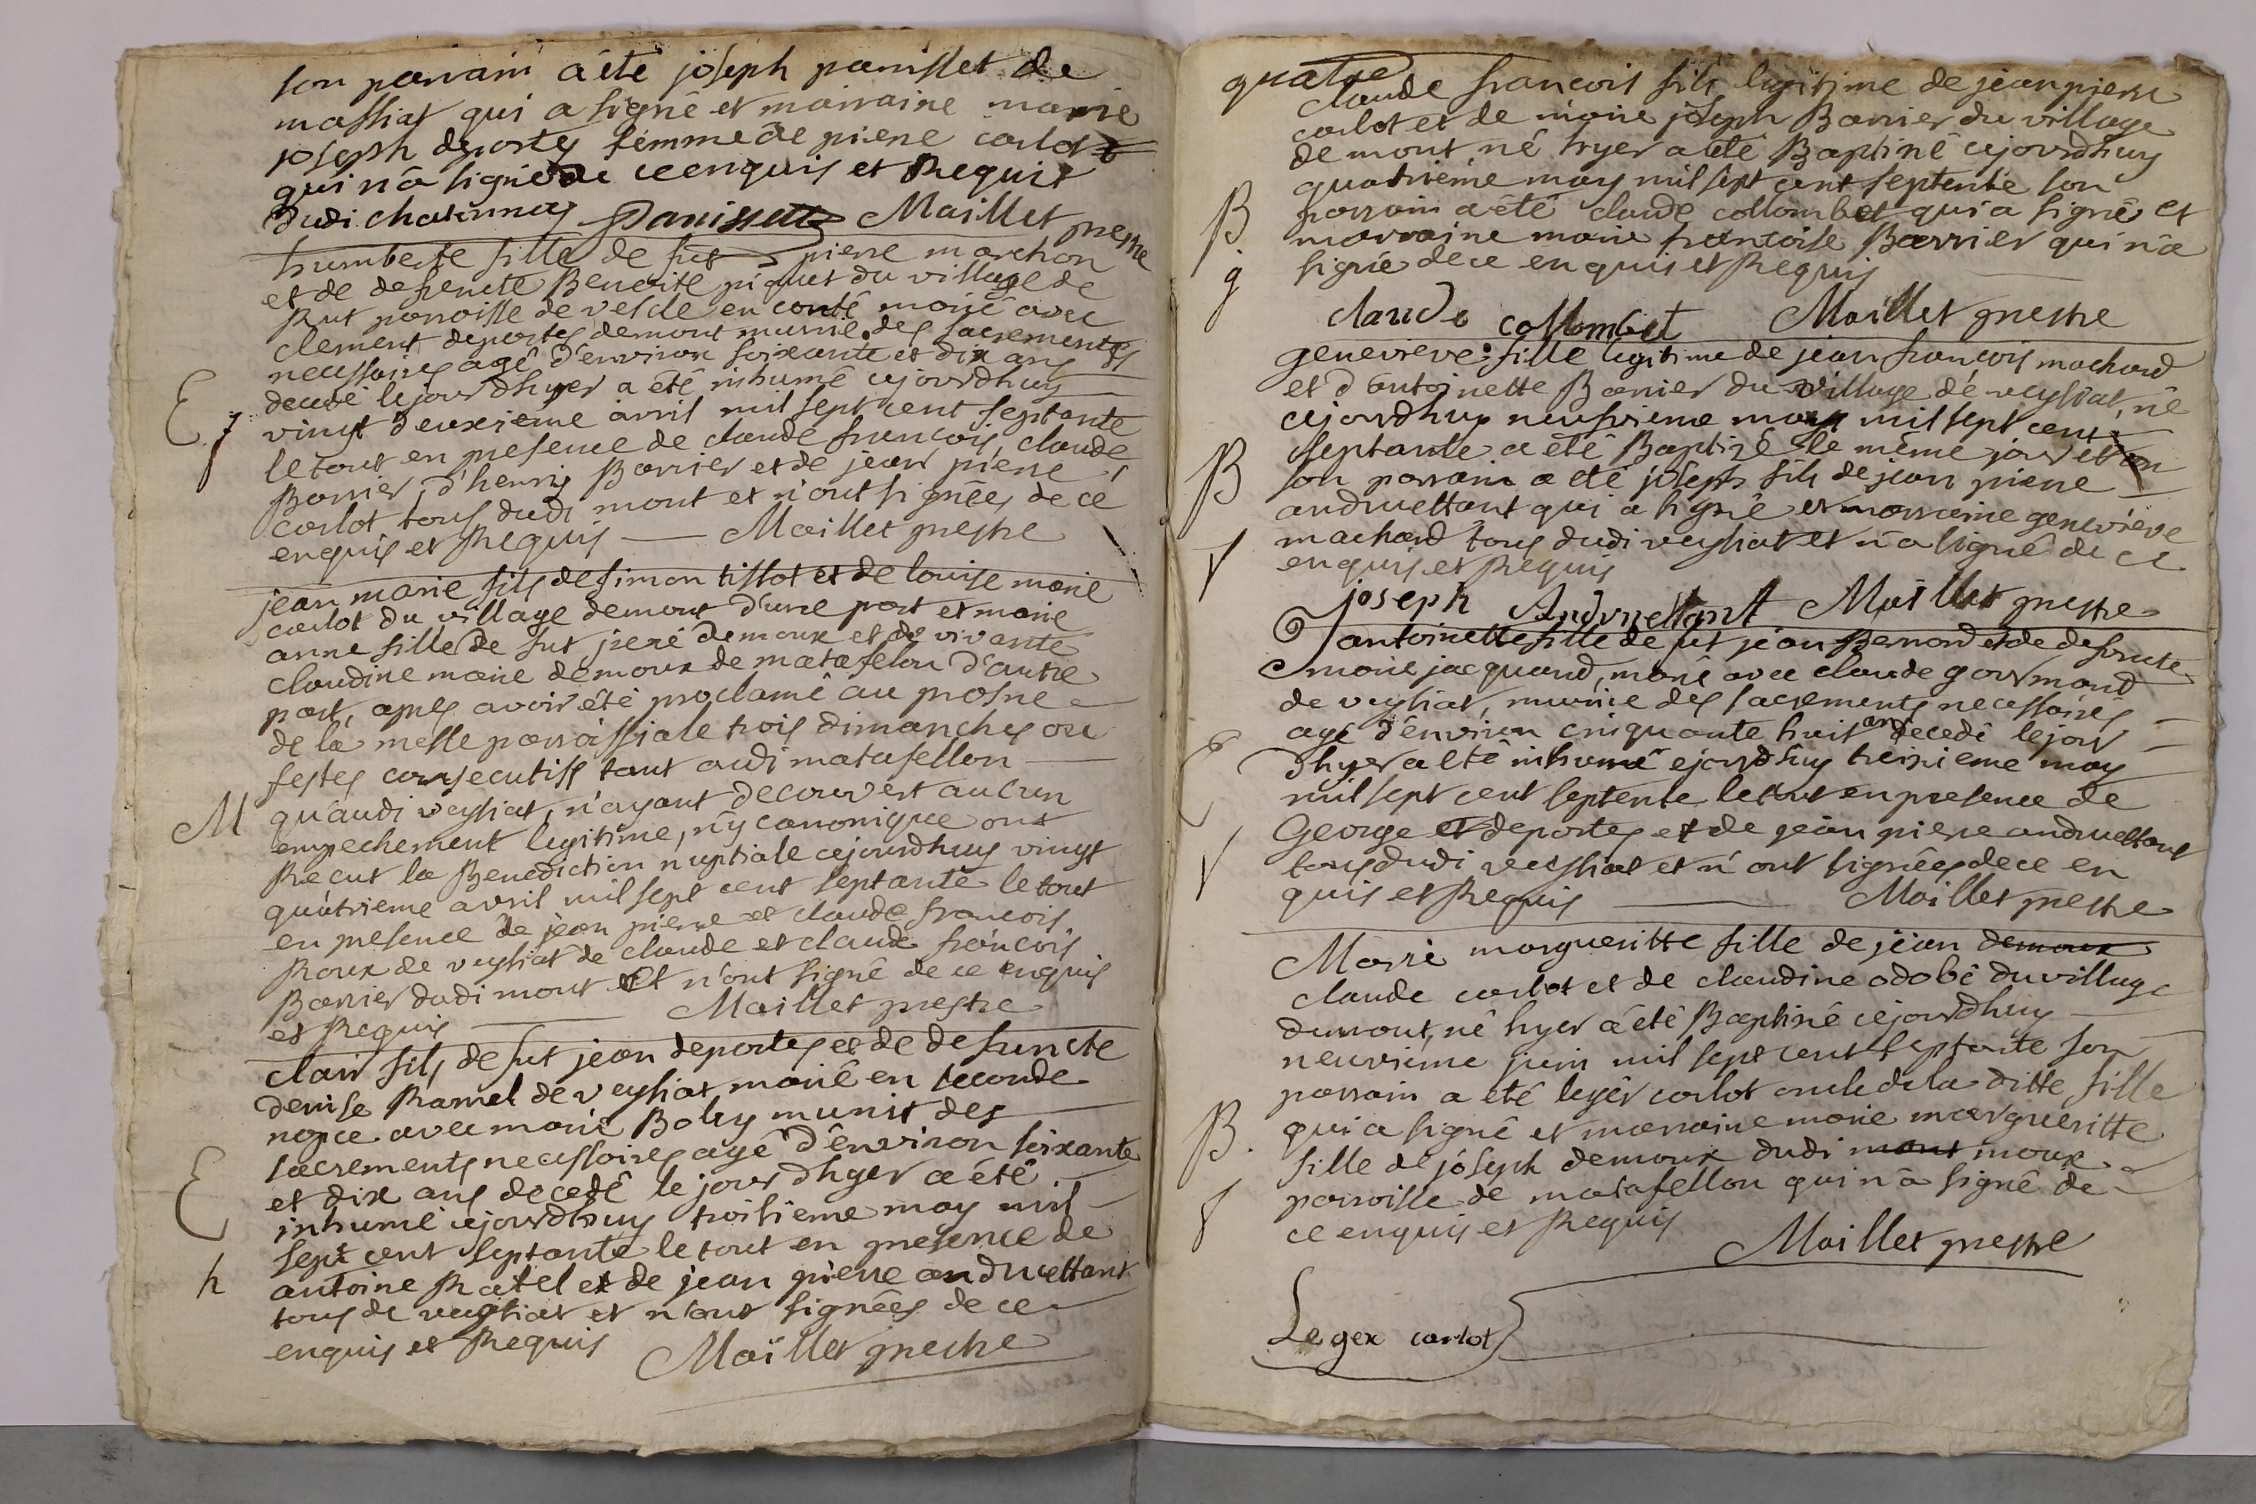 son parrain a été joseph panisset de
massiat qui a signé et marraine marie
joseph deportes femme de pierre carlot
qui n'a signé de ce enquis et Requis
dudi Panissett Maillet prestre
humberte fille de fut pierre marchon
et de defuncte Benoite piquet du village de
parroisse de vescle en conté marié avec
clement deportes demont munie des sacrements
necessaires agé d'environ soixante et dix ans
decedé le jour d'hyer a été inhumé cejourdhuy
E
vingt deuxieme avril mil sept cent septante
le tout en presence de claude francois, claude
Barrier, d'henry Barrier et de jean pierre
carlot tous dudi mont et n'ont signées de ce
enquis et Requis Maillet prestre
jean marie fils de simon tissot et de louise marie
carlot du village demont d'une part et marie
anne fille de fut demoux et de vivante
claudine marie demoux de matafelon d'autre
part, apres avoir été proclamé au prosne
de la messe parroissiale trois dimanches ou
festes consecutifs tant audi matafellon
M qu'audi veysiat, n'ayant decouvert aucun
empechement legitime, n'y canonique ont
Recut la Benediction nuptiale cejourdhuy vingt
quatrieme avril mil sept cent septante le tout
en presence de jean pierre et claude francois
Roux de veysiat de claude et claude francois
Barrier dudi mont et n'ont signé de ce enquis
et Requis Maillet prestre
clair fils de fut jean deportes et de defuncte
denise Ramel de veysiat marié en seconde
nopce avec marie Boley munit des
sacrements necessaires agé d'environ soixante
E et dix ans decedé le jour d'hyer a été
inhumé cejourdhuy troisieme may mil
sept cent septante le tout en presence de
h antoine Ratel et de jean pierre andruettant
tous de veysiat et n'ont signées de ce
enquis et Requis Maillet prestre
quatre
claude francois fils legitime de jean pierre
carlot et de marie joseph Barrier du village
de mont né hyer a été Baptizé cejourdhuy
quatrieme may mil sept cent septente son
B parrain a été claude collombet qui a signé et
marraine marie francoise Barrier qui n'a
g signé de ce enquis et Requis
claude collombet Maillet prestre
genevieve fille legitime de jean francois machard
et d'antoinette Barrier du village de veysiat, né
cejourdhuy neufvieme may mil sept cent
septante a été Baptizé le même jour et an
B son parrain a été joseph fils de jean pierre
andruettant qui a signé et marraine genevieve
machard tous dudi veysiat et n'a signé de ce
enquis et Requis
joseph Andruettant Maillet prestre
antoinette fille de fut jean Bernard et de defuncte
marie jacquand, marié avec claude gourmand
de veysiat, munie des sacrements necessaires
agé d'environ cinquante huit ans decedé le jour
E d'hyer a été inhumé cejourdhuy treizieme may
mil sept cent septente le tout en presence de
George et deportes et de jean pierre andruettant
tous dudi veysiat et n'ont signées de ce en
quis et Requis Maillet prestre
Marie margueritte fille de jean demoux
claude carlot et de claudine odobé du village
dumont, né hyer a été Baptizé cejourdhuy
neuvieme juin mil sept cent septante son
parrain a été legér carlot oncle de la ditte fille
B. qui a signé et marraine marie margueritte
fille de joseph demoux dudi mont moux
parroisse de matafellon qui n'a signé de
ce enquis et Requis
Maillet prestre
Leger carlot